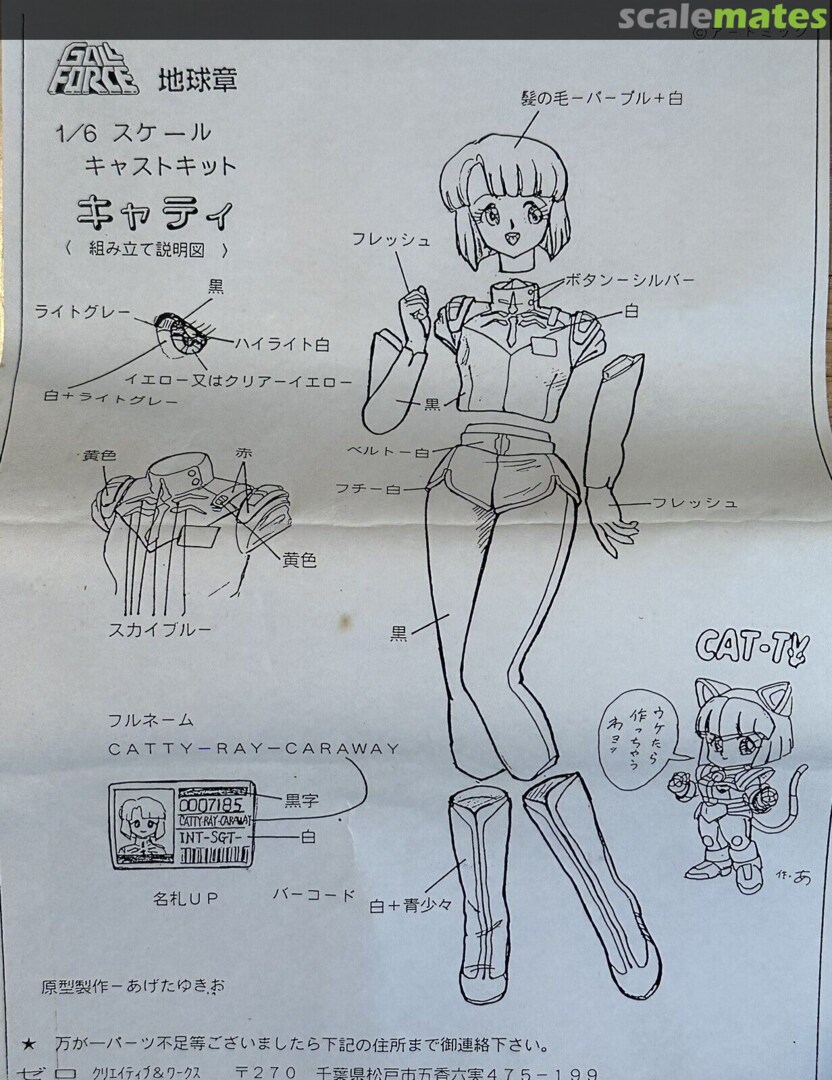 scalemates
©アートミック
GALL FORCE 地球章
1/6 スケール
キャストキット
キャティ
〈 組み立て説明図 〉
髪の毛ーパープル＋白
フレッシュ
ボタンーシルバー
白
黒
ライトグレー
ハイライト白
イエロー又はクリアーイエロー
白＋ライトグレー
黒
ベルトー白
フチー白
フレッシュ
黄色
赤
黄色
スカイブルー
黒
CAT・TY
ウケたら
作っちゃう
わヨッ
作・あ
フルネーム
CATTY－RAY－CARAWAY
0007185
CATTY-RAY-CARAWAY
INT-SGT-
黒字
白
名札UP
バーコード
白＋青少々
原型製作ーあげたゆきお
★ 万が一パーツ不足等ございましたら下記の住所まで御連絡下さい。
ゼロ クリエイティブ&ワークス 〒270 千葉県松戸市五香六実475-199